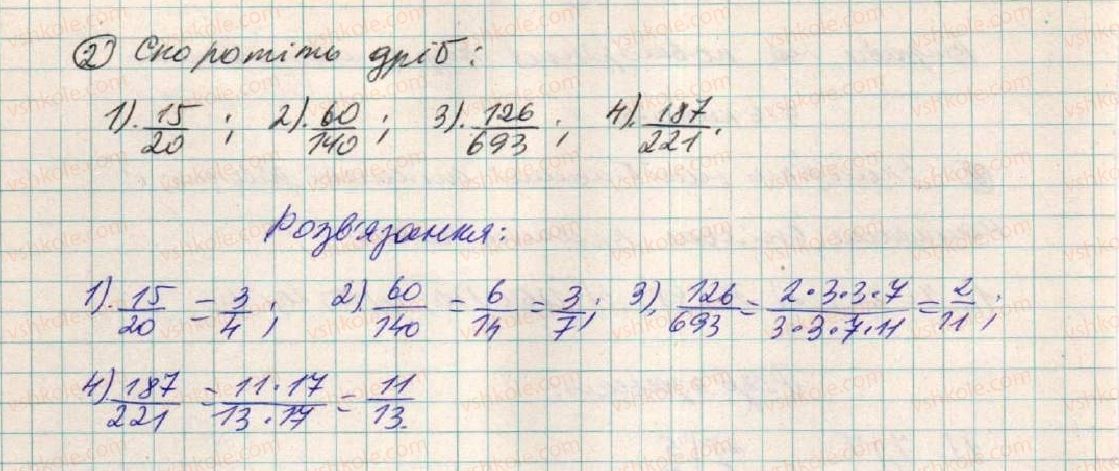 2 Скоротіть дріб:
1). 15/20 ; 2). 60/140 ; 3). 126/693 ; 4). 187/221.
Розв'язання:
1). 15/20 = 3/4 ; 2). 60/140 = 6/14 = 3/7 ; 3). 126/693 = 2·3·3·7/3·3·7·11 = 2/11 ;
4) 187/221 = 11·17/13·17 = 11/13.